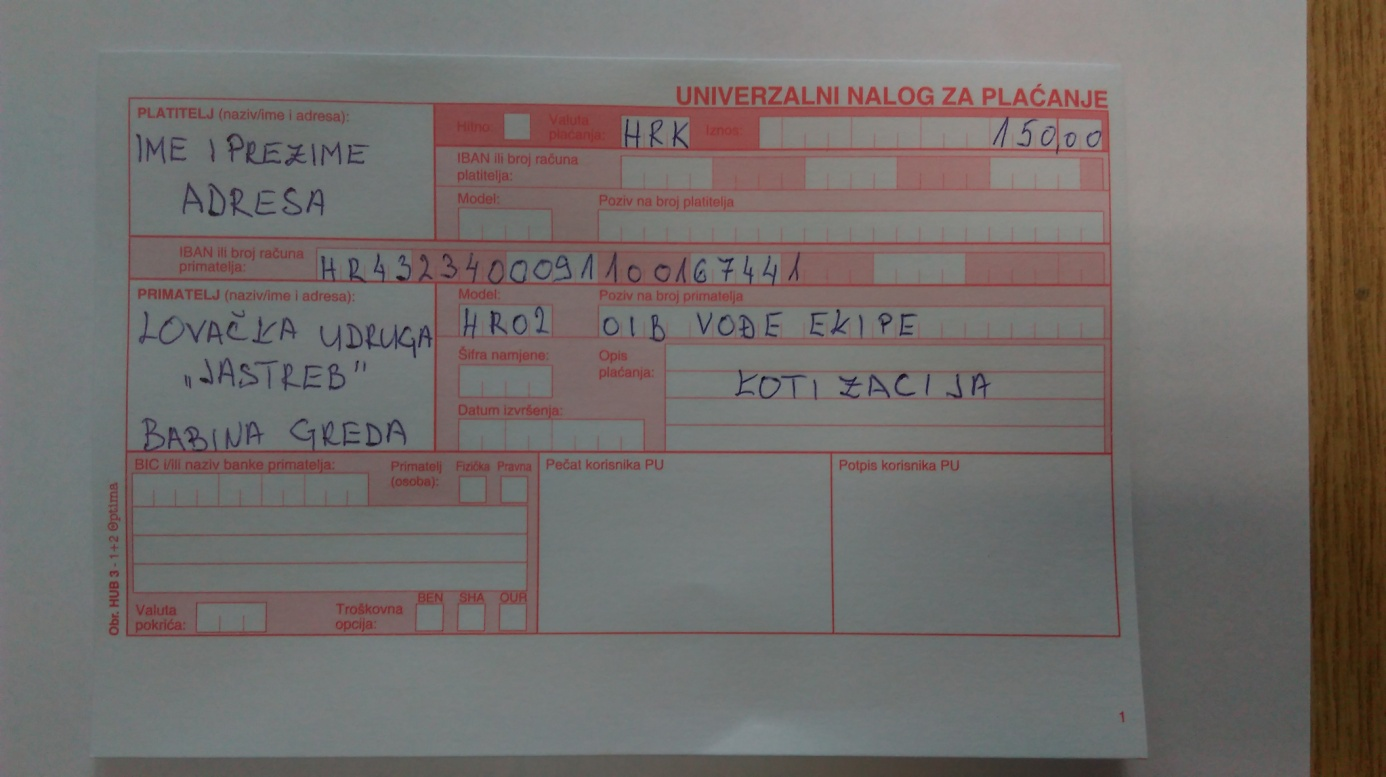 UNIVERZALNI NALOG ZA PLAĆANJE
PLATITELJ (naziv/ime i adresa):
IME I PREZIME
ADRESA
Hitno:
Valuta plaćanja: HRK
Iznos: 150,00
IBAN ili broj računa platitelja:
Model:
Poziv na broj platitelja
IBAN ili broj računa primatelja: HR4323400091100167441
PRIMATELJ (naziv/ime i adresa):
LOVAČKA UDRUGA
„JASTREB"
BABINA GREDA
Model:
HR02
Poziv na broj primatelja
OIB VOĐE EKIPE
Šifra namjene:
Opis plaćanja:
KOTIZACIJA
Datum izvršenja:
BIC i/ili naziv banke primatelja:
Primatelj (osoba):
Fizička Pravna
Pečat korisnika PU
Potpis korisnika PU
Valuta pokrića:
Troškovna opcija:
BEN SHA OUR
Obr. HUB 3 - 1+2 Optima
1